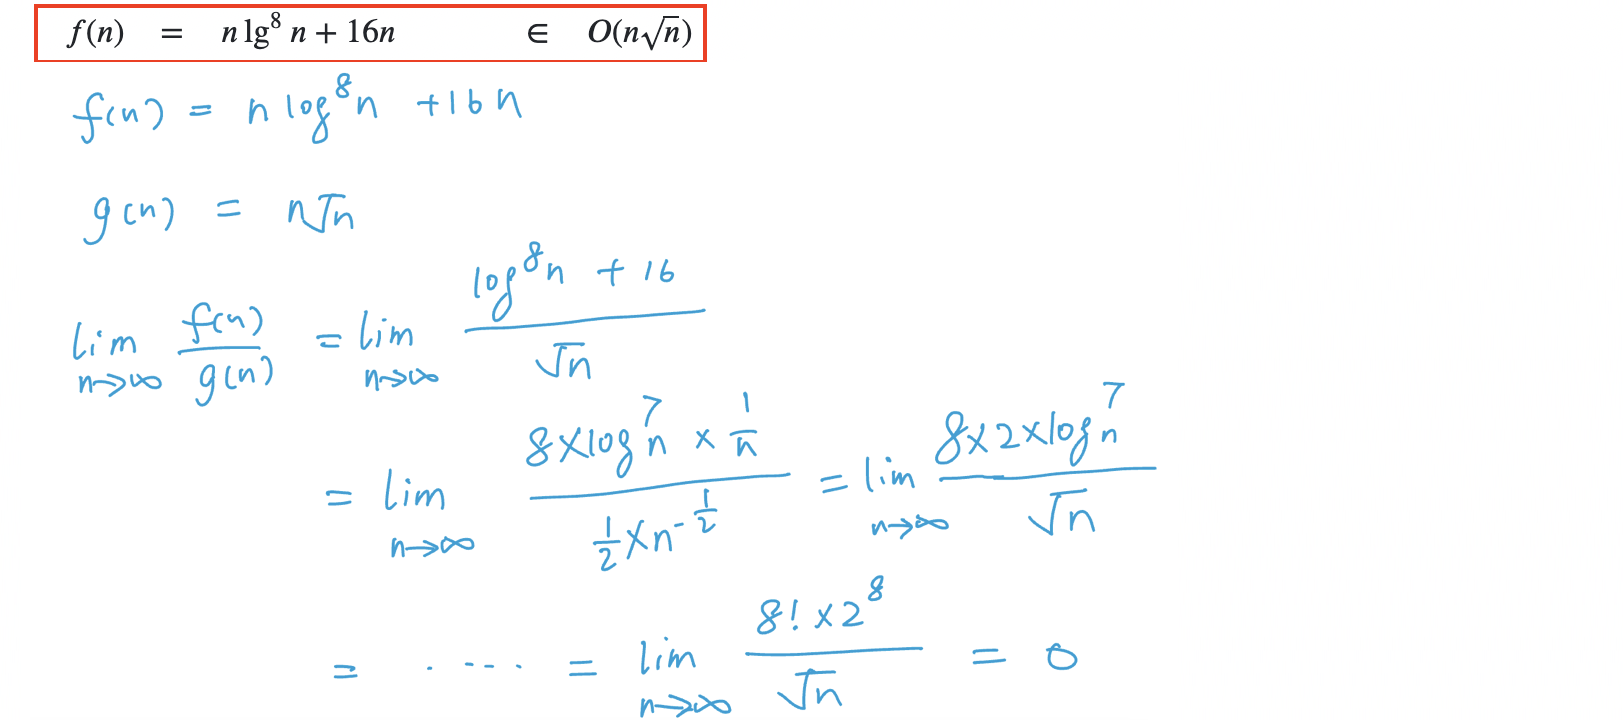 f(n) = n lg⁸ n + 16n ∈ O(n√n)
f(n) = n log⁸n + 16n
g(n) = n√n
lim n→∞ f(n)/g(n) = lim n→∞ (log⁸n + 16)/√n
= lim n→∞ (8×log⁷n × 1/n)/(1/2×n^(-1/2)) = lim n→∞ (8×2×log⁷n)/√n
= ..... = lim n→∞ (8!×2⁸)/√n = 0